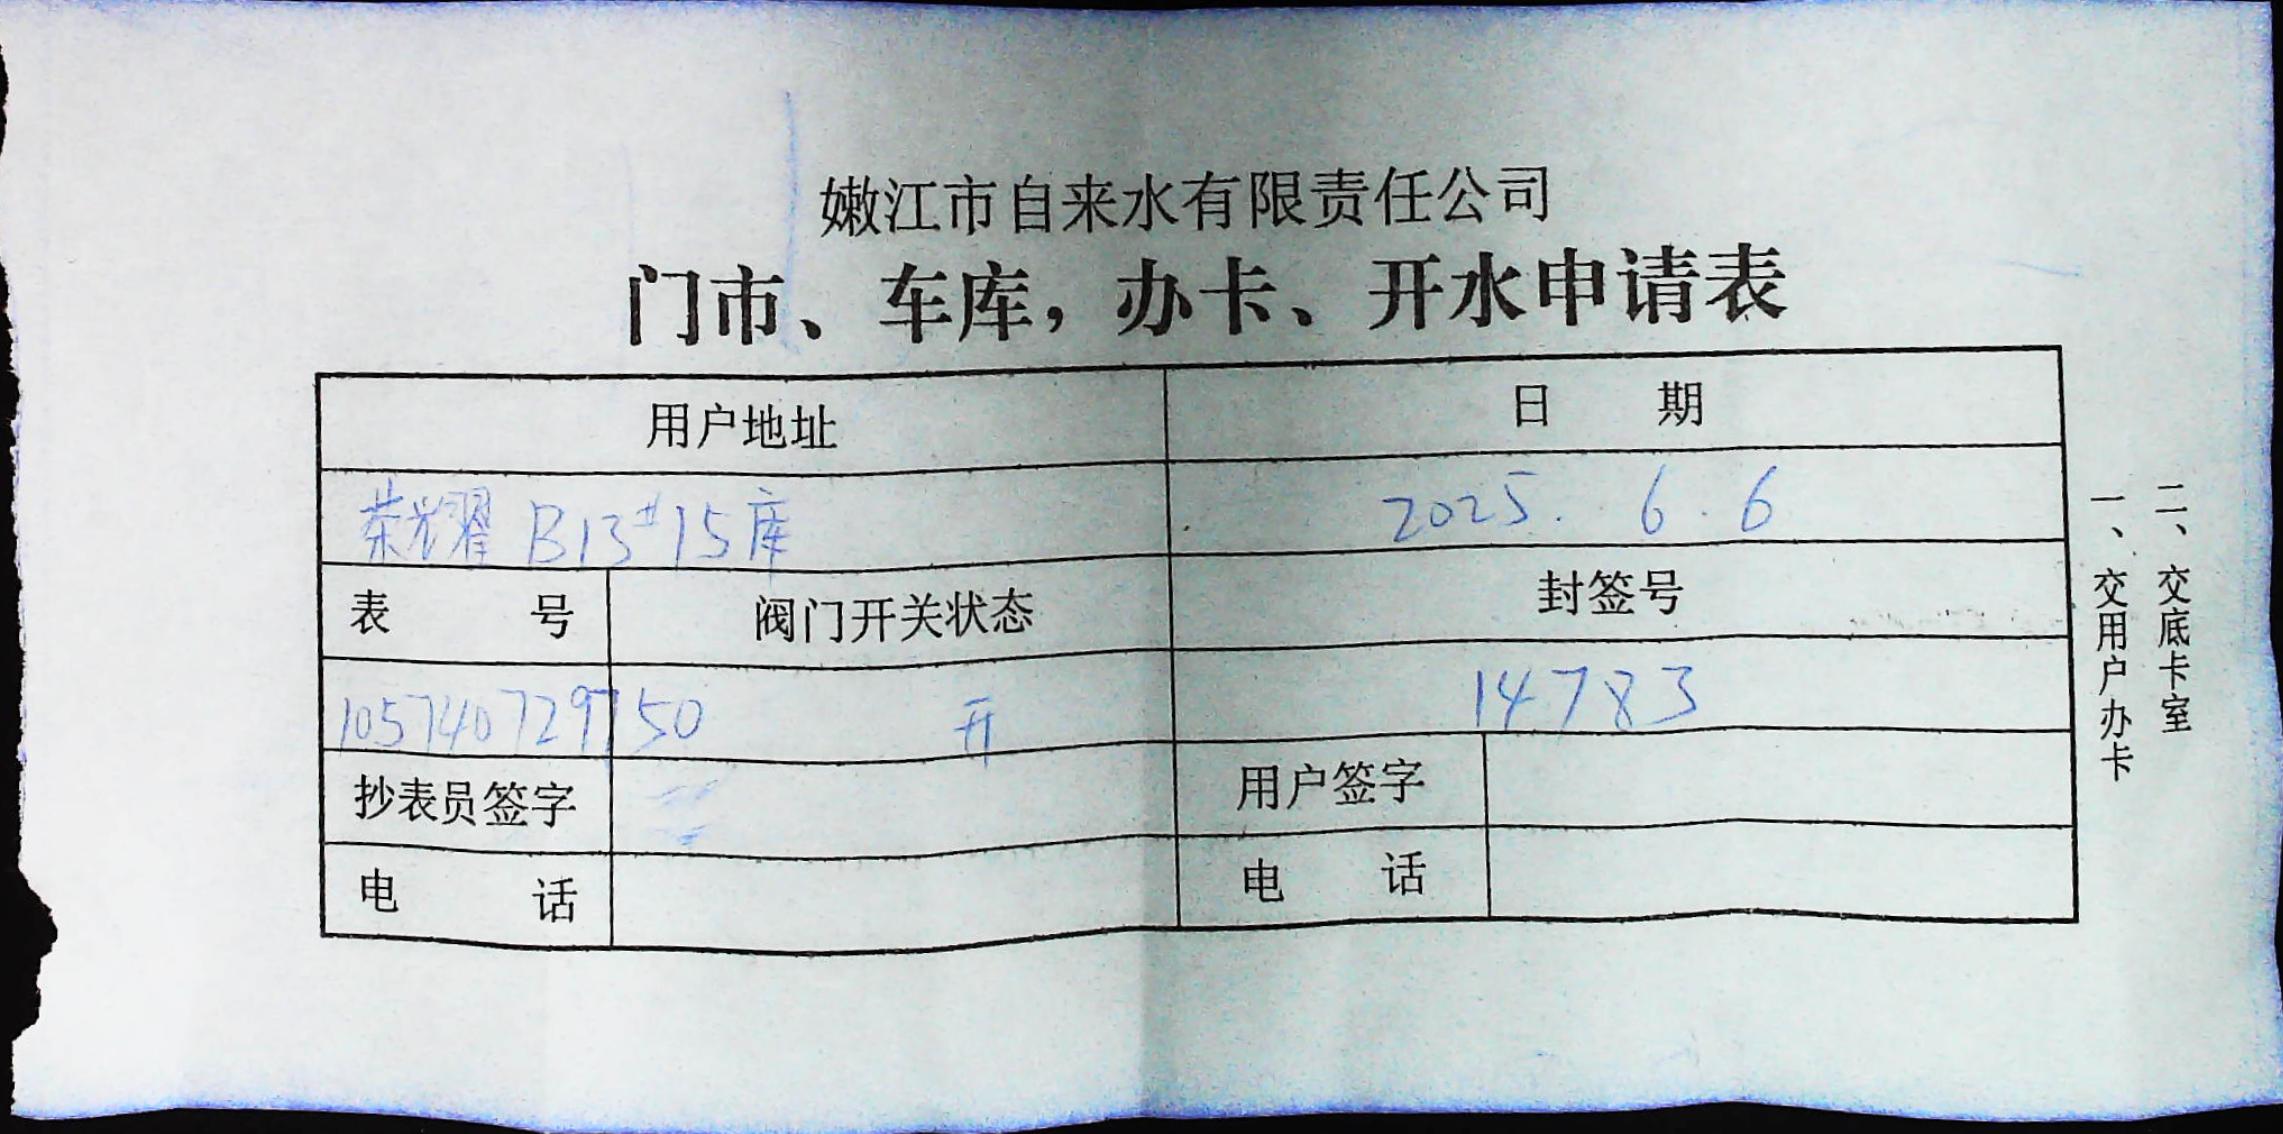 嫩江市自来水有限责任公司
门市、车库，办卡、开水申请表
用户地址 日 期
荣耀 B13#15库 2025. 6. 6
表 号 阀门开关状态 封签号
105740729750 开 14783
抄表员签字 用户签字
电 话 电 话
一、交用户办卡
二、交底卡室